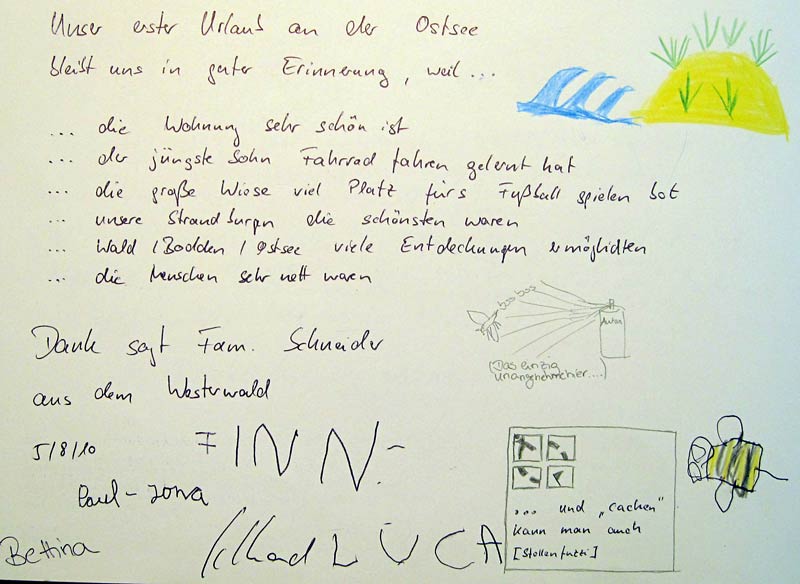 Unser erster Urlaub an der Ostsee
bleibt uns in guter Erinnerung, weil ...
... die Wohnung sehr schön ist
... der jüngste Sohn Fahrrad fahren gelernt hat
... die große Wiese viel Platz fürs Fußball spielen bot
... unsere Strandburgn die schönsten waren
... Wald / Bodden / Ostsee viele Entdeckungen ermöglichten
... die Menschen sehr nett waren
bss bss
Autan
(Das einzig
unangenehme hier....)
Dank sagt Fam. Schneider
aus dem Westerwald
5/8/10
FINN
Paul-Jona
Bettina
LUCA
... und „cachen"
kann man auch
[Stollenfutzi]